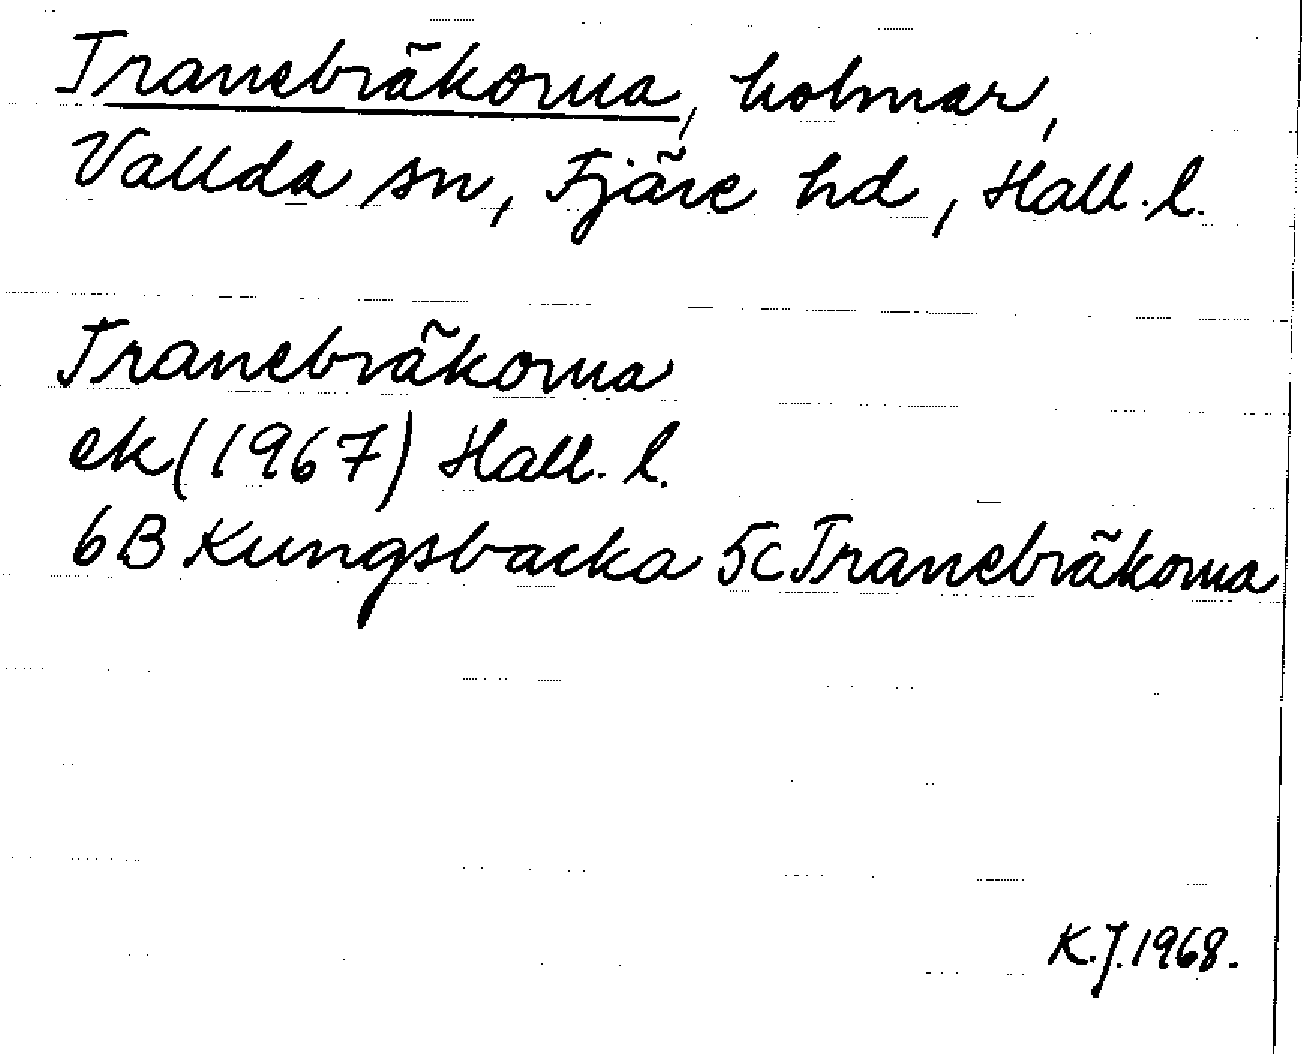 Tranebräkorna, holmar,
Vallda sn, Fjäre hd, Hall. l.
Tranebräkorna
ek (1967) Hall. l.
6B Kungsbacka 5c Tranebräkorna
K.J. 1968.